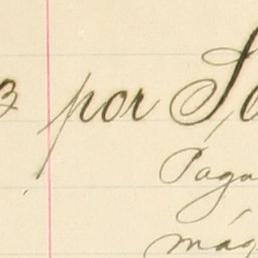 3 por
Paga
máq